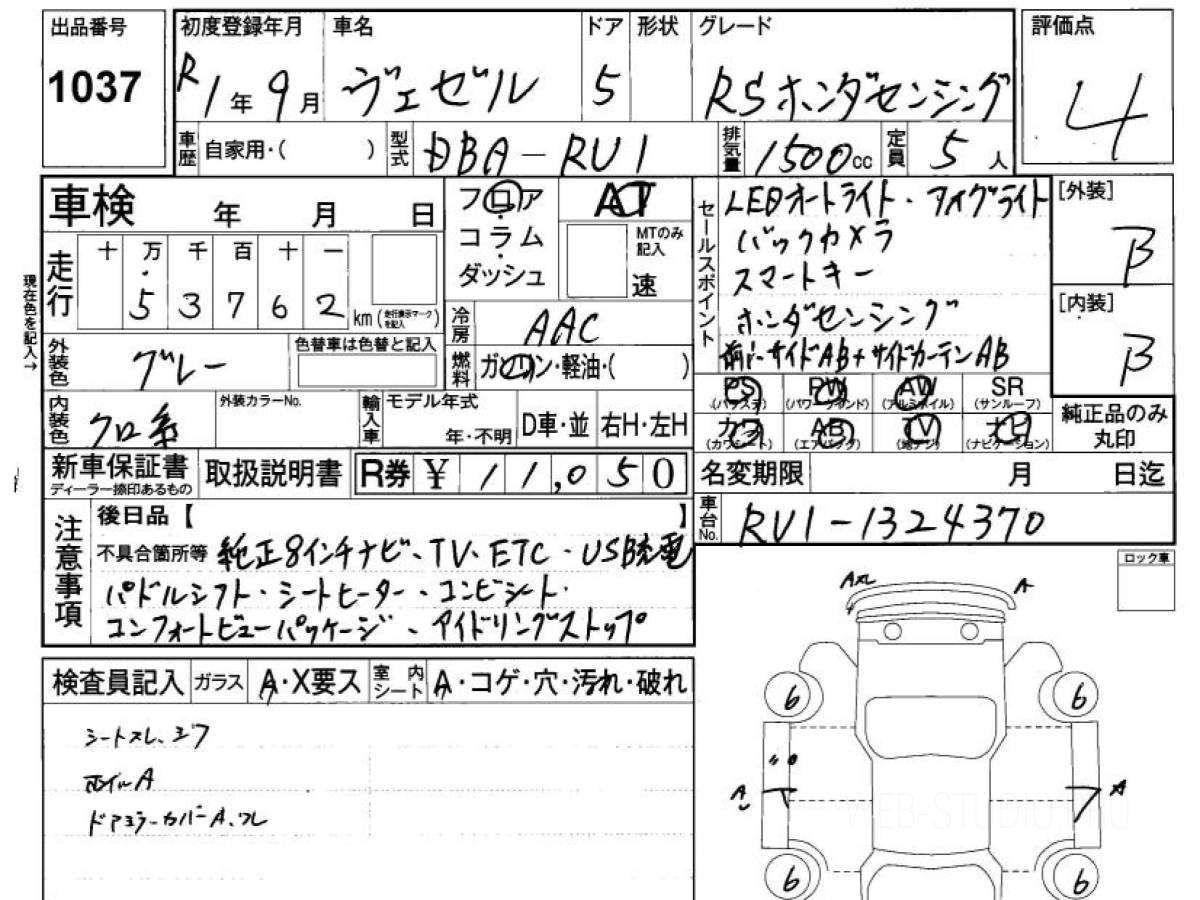 出品番号
1037
初度登録年月 車名 ドア 形状 グレード
R1年9月 ヴェゼル 5 RSホンダセンシング
評価点
4
車歴 自家用・( ) 型式 DBA-RU1 排気量 1500cc 定員 5人
車検 年 月 日
フロア
コラム
ダッシュ
AT
MTのみ記入
速
走行 十 万 千 百 十 一
53762 km (走行表示マークを記入)
現在色を記入→
冷房 AAC
外装色 グレー 色替車は色替と記入
燃料 ガソリン・軽油・( )
内装色 クロ系 外装カラーNo. 輸入車 モデル年式 年・不明 D車・並 右H・左H
セールスポイント
LEDオートライト・アイグライト
バックカメラ
スマートキー
ホンダセンシング
前i-サイドAB+サイドカーテンAB
[外装]
B
[内装]
B
PS (パワステ) PW (パワーウインド) AW (アルミホイル) SR (サンルーフ)
カワ (カワシート) AB (エアバッグ) TV (地デジ) ナビ (ナビゲーション)
純正品のみ丸印
新車保証書 ディーラー捺印あるもの 取扱説明書 R券 ¥ 11,050
名変期限 月 日迄
車台No. RU1-1324370
注意事項
後日品【 】
不具合箇所等 純正8インチナビ、TV、ETC・USB充電
パドルシフト・シートヒーター・コンビシート・
コンフォートビューパッケージ、アイドリングストップ
ロック車
検査員記入 ガラス A・X要ス 室内シート A・コゲ・穴・汚れ・破れ
シートスレ、コゲ
ホイルA
ドアミラーカバーA、スレ
A A
6 6
A A
6 6
WEB-STUDIO.PRO